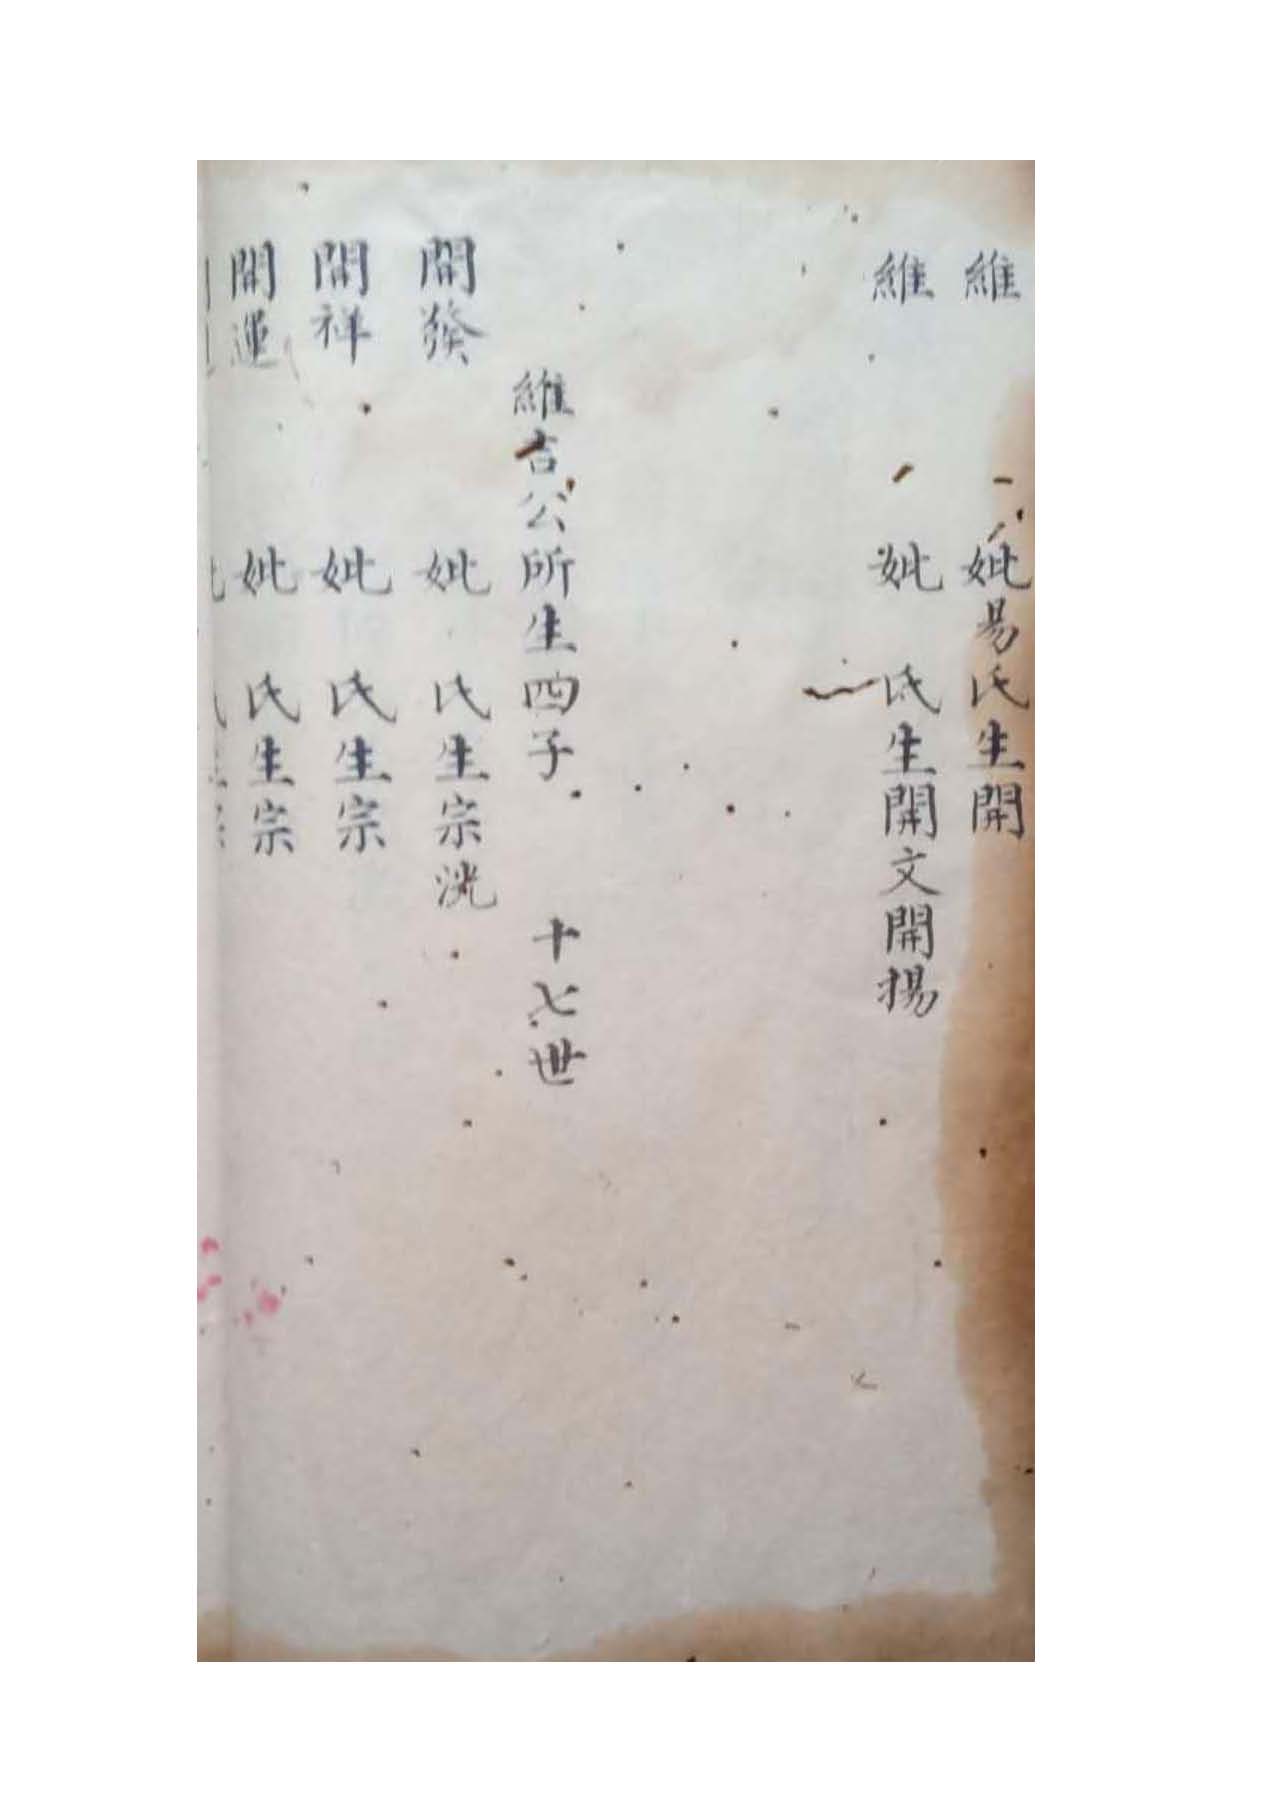 維 妣易氏生開
維 妣 氏生開文開揚
維吉公所生四子 十七世
開發 妣 氏生宗洸
開祥 妣 氏生宗
開運 妣 氏生宗